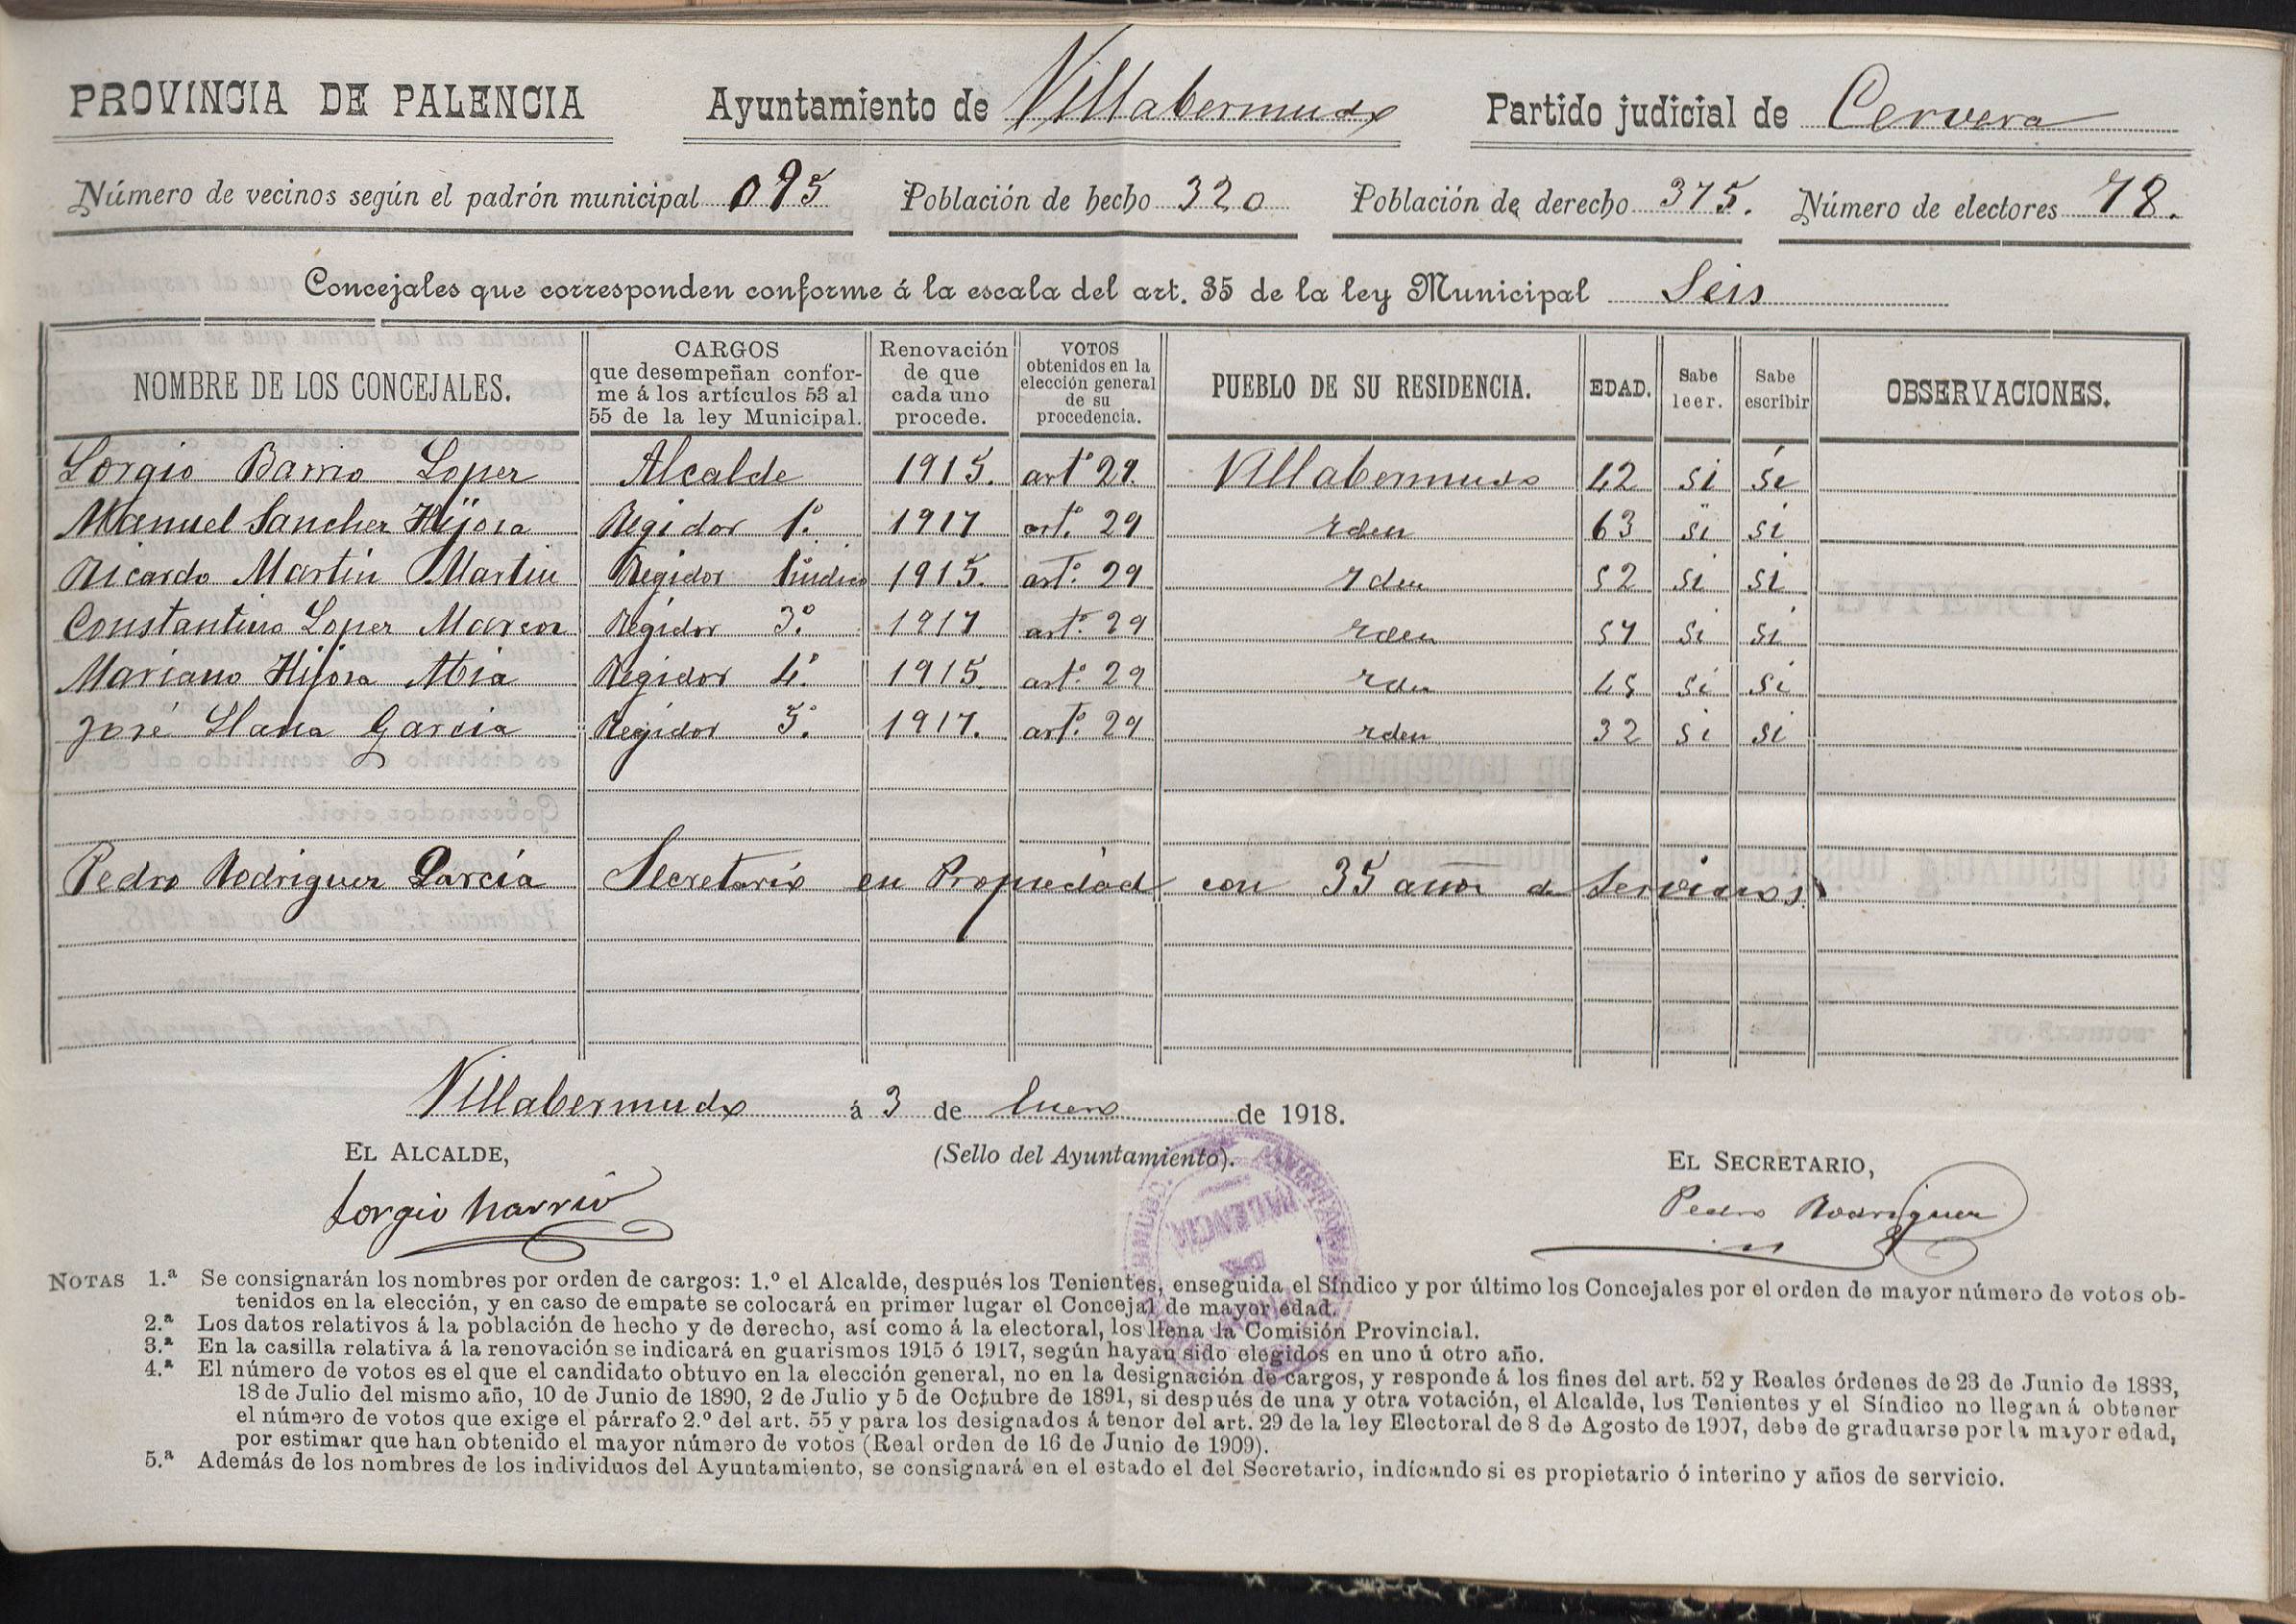 PROVINCIA DE PALENCIA Ayuntamiento de Villabermudo Partido judicial de Cervera
Número de vecinos según el padrón municipal 095 Población de hecho 320 Población de derecho 375. Número de electores 78.
Concejales que corresponden conforme á la escala del art. 35 de la ley Municipal Seis
NOMBRE DE LOS CONCEJALES. CARGOS que desempeñan conforme á los artículos 53 al 55 de la ley Municipal. Renovación de que cada uno procede. VOTOS obtenidos en la elección general de su procedencia. PUEBLO DE SU RESIDENCIA. EDAD. Sabe leer. Sabe escribir OBSERVACIONES.
Sorgio Barrio Lopez Alcalde 1915. artº 29. Villabermudo 42 si si
Manuel Sanchez Hijosa Regidor 1º. 1917 art.º 29 iden 63 si si
Ricardo Martin Martin Regidor Sindico 1915. art.º 29 iden 52 si si
Constantino Lopez Marcos Regidor 3º. 1917 art.º 29 iden 57 si si
Mariano Hijosa Abia Regidor 4º. 1915. art.º 29 iden 45 si si
José Llana Garcia Regidor 5º. 1917. art.º 29 iden 32 si si
Pedro Rodriguez Garcia Secretario en Propiedad con 35 años de Servicios
Villabermudo á 3 de Enero de 1918.
EL ALCALDE, (Sello del Ayuntamiento). EL SECRETARIO,
Sorgio Barrio Pedro Rodriguez
PALENCIA
NOTAS 1.ª Se consignarán los nombres por orden de cargos: 1.º el Alcalde, después los Tenientes, enseguida el Síndico y por último los Concejales por el orden de mayor número de votos ob-
tenidos en la elección, y en caso de empate se colocará en primer lugar el Concejal de mayor edad.
2.ª Los datos relativos á la población de hecho y de derecho, así como á la electoral, los llena la Comisión Provincial.
3.ª En la casilla relativa á la renovación se indicará en guarismos 1915 ó 1917, según hayan sido elegidos en uno ú otro año.
4.ª El número de votos es el que el candidato obtuvo en la elección general, no en la designación de cargos, y responde á los fines del art. 52 y Reales órdenes de 23 de Junio de 1888,
18 de Julio del mismo año, 10 de Junio de 1890, 2 de Julio y 5 de Octubre de 1891, si después de una y otra votación, el Alcalde, los Tenientes y el Síndico no llegan á obtener
el número de votos que exige el párrafo 2.º del art. 55 y para los designados á tenor del art. 29 de la ley Electoral de 8 de Agosto de 1907, debe de graduarse por la mayor edad,
por estimar que han obtenido el mayor número de votos (Real orden de 16 de Junio de 1909).
5.ª Además de los nombres de los individuos del Ayuntamiento, se consignará en el estado el del Secretario, indicando si es propietario ó interino y años de servicio.